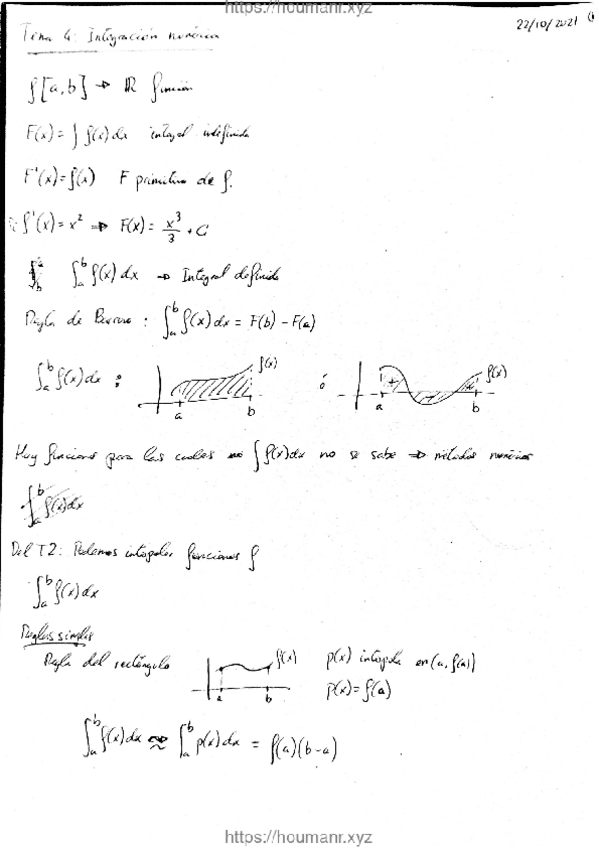 https://houmanr.xyz
22/10/2021
Tema 4: Integración numérica
f[a,b] → ℝ función
F(x) = ∫ f(x) dx integral indefinida
F'(x) = f(x) F primitiva de f.
f'(x) = x² → F(x) = x³/3 + C
∫_a^b f(x) dx → Integral definida
Regla de Barrow: ∫_a^b f(x) dx = F(b) - F(a)
∫_a^b f(x) dx : f(x) a b ó + - + f(x) a b
Hay funciones para las cuales ∫ f(x) dx no se sabe ⇒ métodos numéricos
∫_a^b f(x) dx
Del T2: Podemos interpolar funciones f
∫_a^b f(x) dx
Reglas simples
Regla del rectángulo f(x) a b p(x) interpola en (a, f(a))
p(x) = f(a)
∫_a^b f(x) dx ≈ ∫_a^b p(x) dx = f(a)(b-a)
https://houmanr.xyz